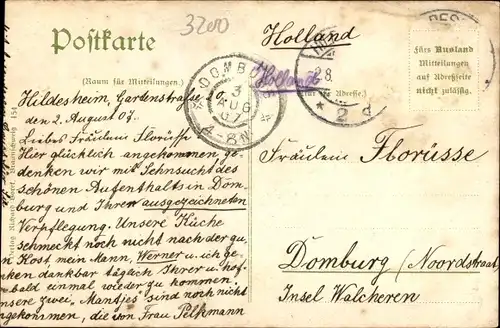 3200
Postkarte
Holland
(Raum für Mitteilungen.)
Fürs Ausland
Mitteilungen
auf Adreßseite
nicht zulässig.
Holland
DOMBU
3
AUG
07
4-8N
Adresse.)
* 2 d
Hildesheim, Gartenstrasse
den 2. August 07.
Liebes Fräulein Florüsse
Hier glücklich angekommen, ge-
denken wir mit Sehnsucht des
schönen Aufenthalts in Dom-
burg und Ihrer ausgezeichneten
Verpflegung. Unsere Küche
schmeckt noch nicht nach der gu-
n Kost mein Mann, Werner u. ich ge-
nken dankbar täglich Ihrer u. hof-
bald einmal wieder zu kommen.
nsere zwei "Mantjes" sind noch nicht
ngekommen, die von Frau Pelkmann
Fräulein Florüsse
Domburg (Noordstraat
Insel Walcheren